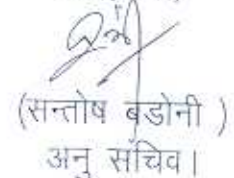 (सन्तोष बडोनी )
अनु सचिव।